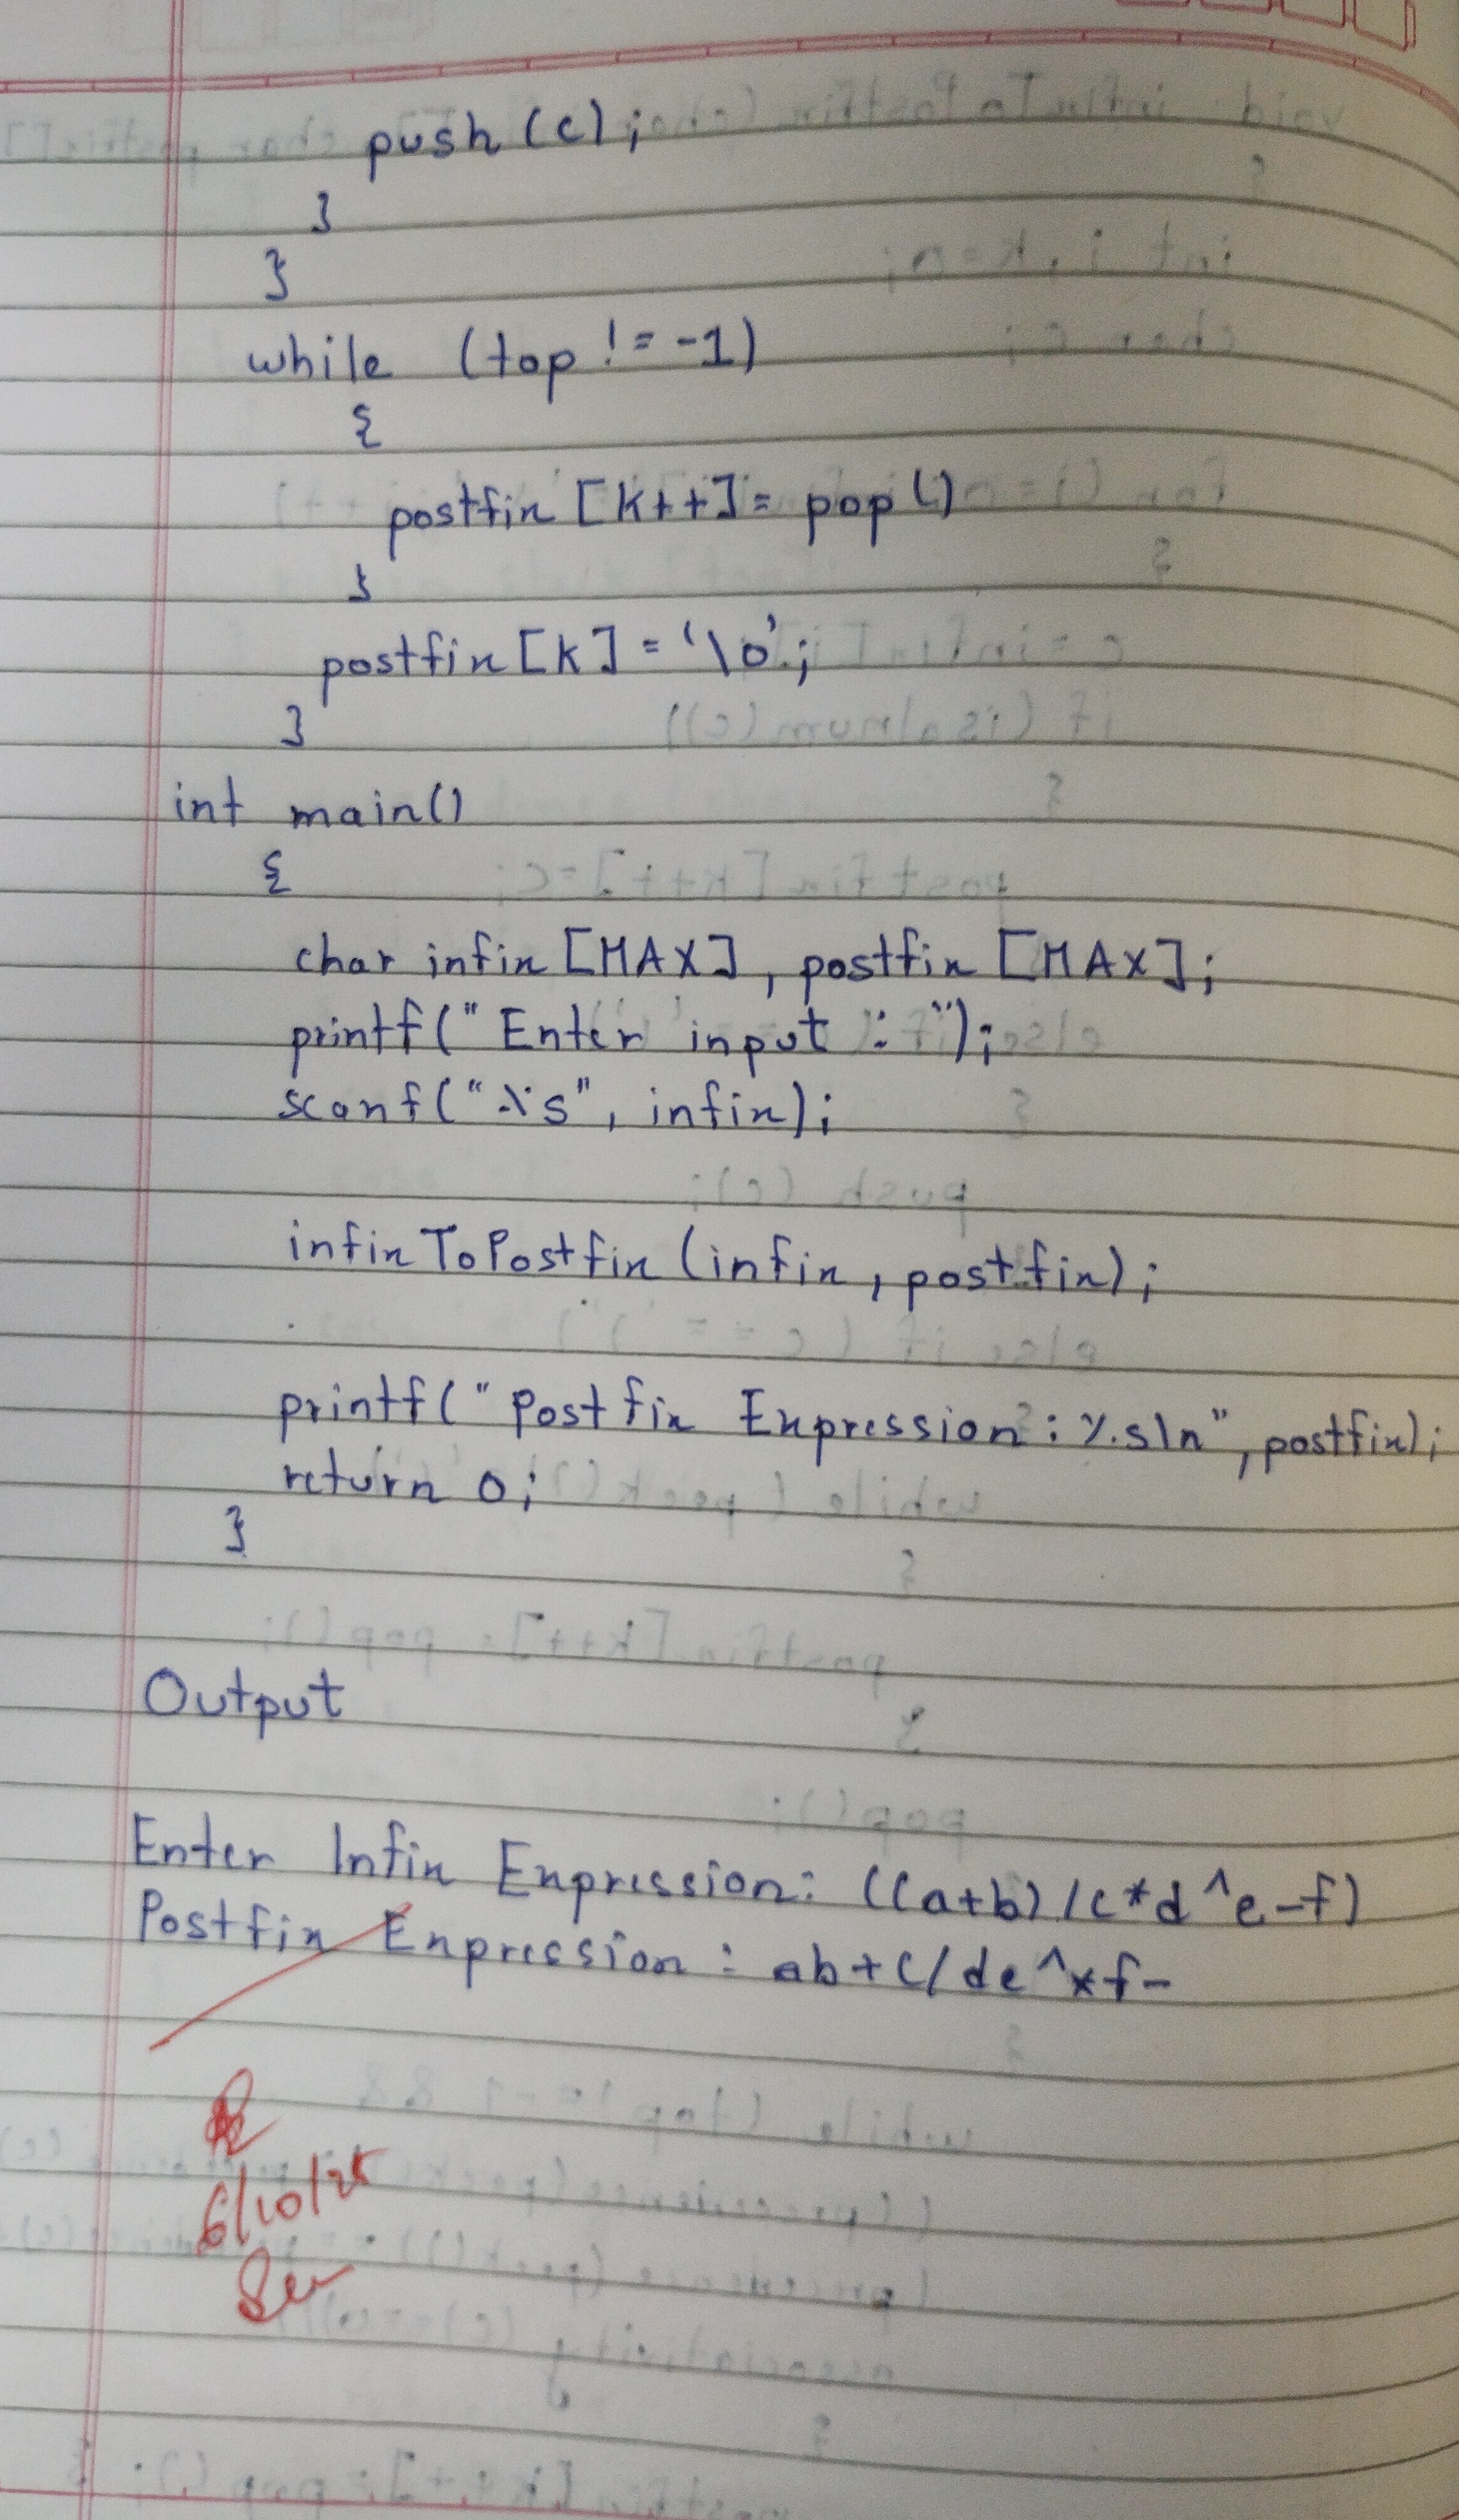 push (c);
}
}
while (top != -1)
{
postfix [k++] = pop()
}
postfix [k] = '\0';
}
int main()
{
char infix [MAX], postfix [MAX];
printf("Enter input : ");
scanf("%s", infix);
infixToPostfix (infix, postfix);
printf("Postfix Expression : %s\n", postfix);
return 0;
}
Output
Enter Infix Expression: ((a+b)/c*d^e-f)
Postfix Expression : ab+c/de^*f-
6/10/25